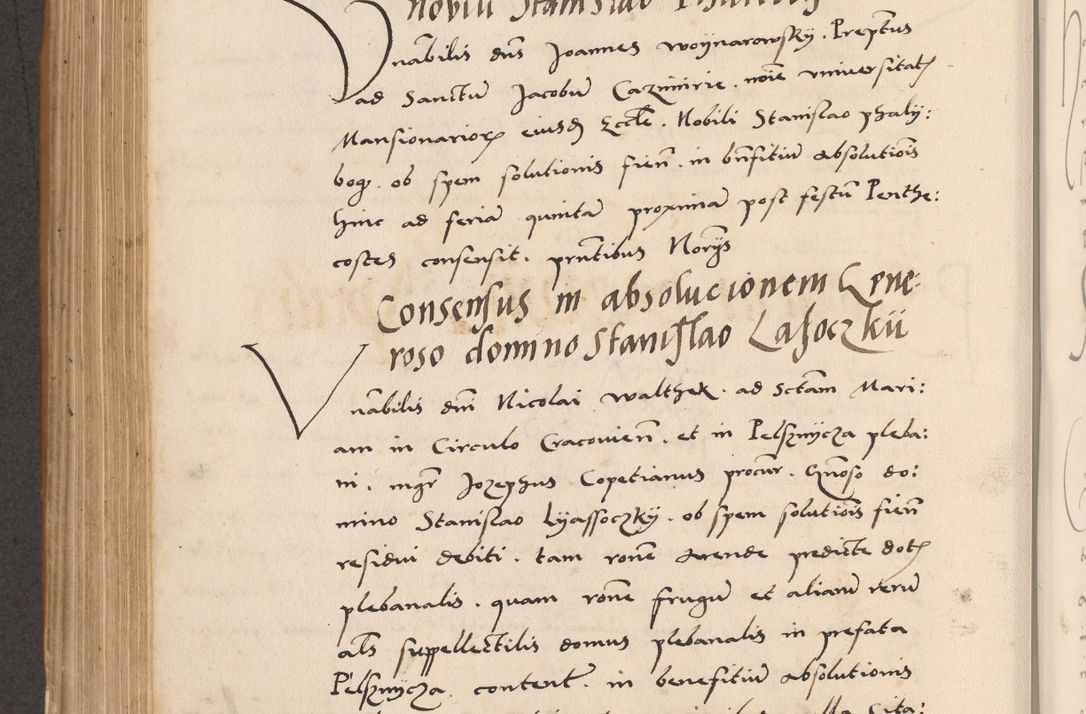 nobili Stanislao
Vnabilis dns Joannes woynarowsky. Preptus
ad Sanctu Jacobu Cazimirie. noie vniuersitat
Mansionarior eiusd Eccle. Nobili Stanislao phaly:
bog. ob spem solutionis fien. in bnfitiu absolutiois
hinc ad feria quinta proxima post festu Penthe:
costes consensit. pntibus Norys
Consensus in absolucionem Gene:
roso domino Stanislao Lasoczkii
Vnabilis dni Nicolai walther. ad Sctam Mari:
am in Circulo Cracouien. et in Pelsznycza pleba:
ni. mgr Jozephus Copetianus procur. Gnoso do:
mino Stanislao Lyassoczky. ob spem solutiois fien
residui debiti. tam rone arende predicte dot
plebanalis. quam rone frugu et aliaru reru
als suppellectilis domus plebanalis in prefata
Pelsznycza. content. in benefitiu absolutionis